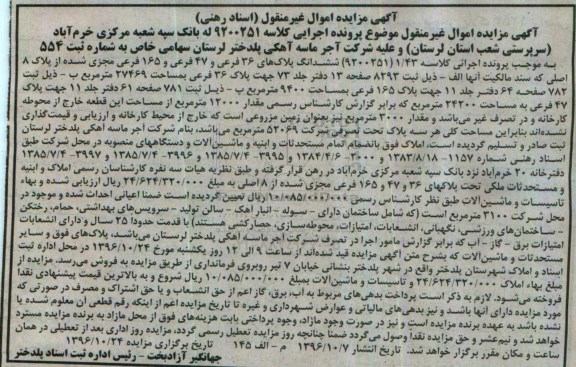 آگهی مزایده اموال غیرمنقول (اسناد رهنی)
آگهی مزایده اموال غیرمنقول موضوع پرونده اجرایی کلاسه ۹۲۰۰۲۵۱ له بانک سپه شعبه مرکزی خرم‌آباد
(سرپرستی شعب استان لرستان) و علیه شرکت آجر ماسه آهکی پلدختر لرستان سهامی خاص به شماره ثبت ۵۵۴
به موجب پرونده اجرائی کلاسه ۱/۴۳ (۹۲۰۰۲۵۱) ششدانگ پلاک‌های ۳۶ فرعی و ۴۷ فرعی و ۱۶۵ فرعی مجزی شده از پلاک ۸
اصلی که سند مالکیت آنها الف - ذیل ثبت ۸۲۹۳ صفحه ۱۳ دفتر جلد ۷۳ جهت پلاک ۳۶ فرعی بمساحت ۲۷۴۶۹ مترمربع ب - ذیل ثبت
۷۸۲ صفحه ۶۴ دفتر جلد ۱۱ جهت پلاک ۱۶۵ فرعی بمساحت ۹۴۰۰ مترمربع پ - ذیل ثبت ۷۸۱ صفحه ۶۱ دفتر جلد ۱۱ جهت پلاک
۴۷ فرعی به مساحت ۲۴۲۰۰ مترمربع که برابر گزارش کارشناس رسمی مقدار ۱۲۰۰۰ مترمربع از مساحت این قطعه خارج از محوطه
کارخانه و در تصرف غیر می‌باشد و مقدار ۳۰۰۰ مترمربع نیز بعنوان زمین مزروعی است که خارج از محیط کارخانه و ارزیابی و قیمت‌گذاری
نشده‌اند بنابراین مساحت کلی هر سه پلاک تحت تصرف شرکت ۵۲۰۶۹ مترمربع می‌باشد، بنام شرکت آجر ماسه آهکی پلدختر لرستان
ثبت صادر و تسلیم گردیده است، املاک فوق بانضمام تمام مستحدثات و ابنیه و ماشین‌آلات و دستگاههای منصوبه در محل شرکت طبق
اسناد رهنی شماره ۱۱۵۷- ۱۳۸۳/۸/۱۸ و ۳۰۰- ۱۳۸۴/۴/۶ و ۳۹۹۵- ۱۳۸۵/۷/۴ و ۳۹۹۶- ۱۳۸۵/۷/۴ و ۳۹۹۷- ۱۳۸۵/۷/۴
دفترخانه ۲۰ خرم‌آباد نزد بانک سپه شعبه مرکزی خرم‌آباد در رهن قرار گرفته و طبق نظریه هیات سه نفره کارشناسان رسمی املاک و ابنیه
و مستحدثات ملکی تحت پلاکهای ۳۶ و ۴۷ و ۱۶۵ فرعی مجزی شده از ۸ اصلی به مبلغ ۲۴/۶۲۴/۳۲۰/۰۰۰ ریال ارزیابی شده و بهاء
تاسیسات و ماشین‌آلات طبق نظر کارشناس رسمی ۱۰/۰۸۵/۰۰۰/۰۰۰ ریال تعیین گردیده است ضمنا اعیانی احداث شده و موجود در
محل شرکت ۳۱۰۰ مترمربع است (که شامل ساختمان دارای - سوله - انبار آهک - سالن تولید - سرویس‌های بهداشتی، حمام، رختکن
- ساختمان‌های ورزشی، نگهبانی، انشعابات، امتیازات، محوطه‌سازی، حصارکشی هستند) با قدمت حدودا ۲۵ سال و دارای انشعابات
امتیازات برق - گاز - آب که برابر گزارش مامور اجرا در تصرف شرکت آجر ماسه آهکی پلدختر لرستان می‌باشند، پلاک‌های فوق و سایر
مستحدثات و ماشین‌آلات که بشرح متن آگهی مزایده قید شده‌اند از ساعت ۹ الی ۱۲ روز یکشنبه مورخ ۱۳۹۶/۱۰/۲۴ در محل اداره ثبت
اسناد و املاک شهرستان پلدختر واقع در شهر پلدختر بنشانی خیابان ۷ تیر روبروی فرمانداری از طریق مزایده به فروش می‌رسد. مزایده از
مبلغ بهاء املاک ۲۴/۶۲۴/۳۲۰/۰۰۰ و تاسیسات و ماشین آلات بمبلغ ۱۰/۰۸۵/۰۰۰/۰۰۰ ریال شروع و به بالاترین قیمت پیشنهادی نقدا
فروخته می‌شود. لازم به ذکر است پرداخت بدهی‌های مربوط به آب، برق، گاز اعم از حق انشعاب و یا حق اشتراک و مصرف در صورتی که
مورد مزایده دارای آنها باشد و نیز بدهی‌های مالیاتی و عوارض شهرداری و غیره تا تاریخ مزایده اعم از اینکه رقم قطعی آن معلوم شده یا
نشده باشد به عهده برنده مزایده است و نیز در صورت وجود مازاد، وجوه پرداختی بابت هزینه‌های فوق از محل مازاد به برنده مزایده مسترد
خواهد شد و نیم‌عشر و حق مزایده نقدا وصول می‌گردد ضمنا چنانچه روز مزایده تعطیل رسمی گردد، مزایده روز اداری بعد از تعطیلی در همان
ساعت و مکان مقرر برگزار خواهد شد. تاریخ انتشار ۱۳۹۶/۱۰/۷ م - الف ۱۴۵ تاریخ برگزاری مزایده ۱۳۹۶/۱۰/۲۴
جهانگیر آزادبخت - رئیس اداره ثبت اسناد پلدختر